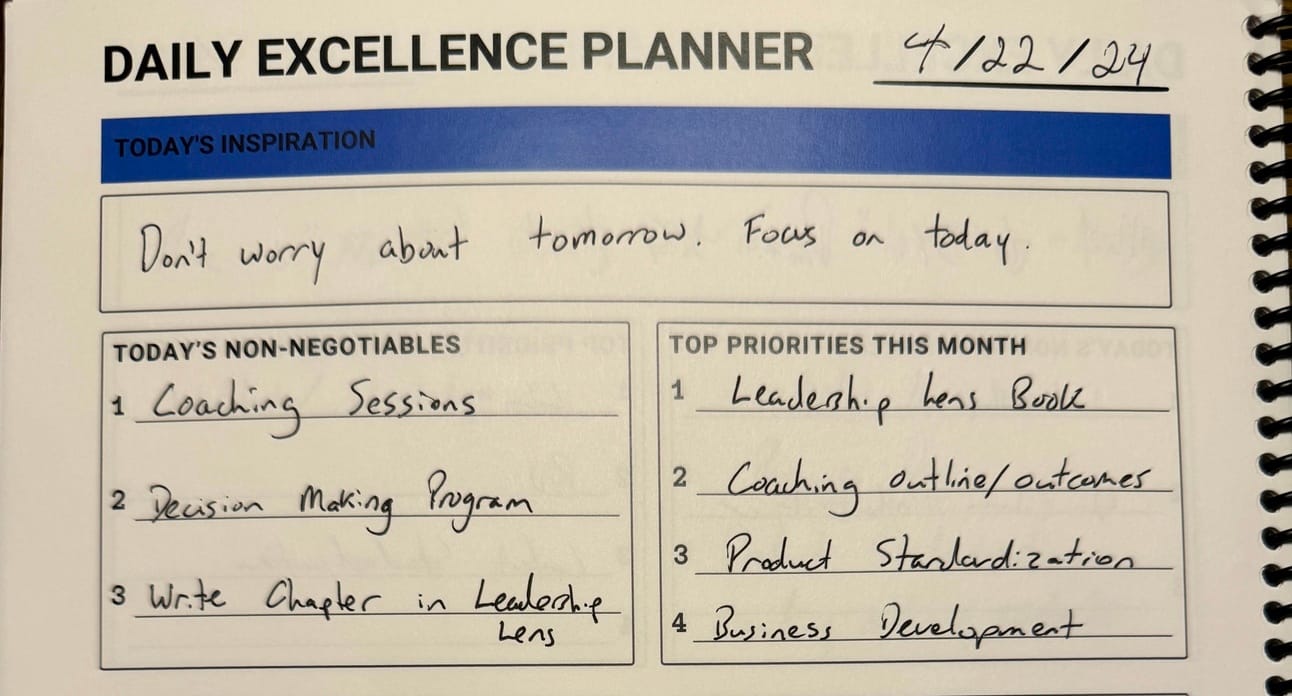 DAILY EXCELLENCE PLANNER 4/22/24
TODAY'S INSPIRATION
Don't worry about tomorrow. Focus on today.
TODAY'S NON-NEGOTIABLES
1 Coaching Sessions
2 Decision Making Program
3 Write Chapter in Leadership
Lens
TOP PRIORITIES THIS MONTH
1 Leadership Lens Book
2 Coaching outline/outcomes
3 Product Standardization
4 Business Development